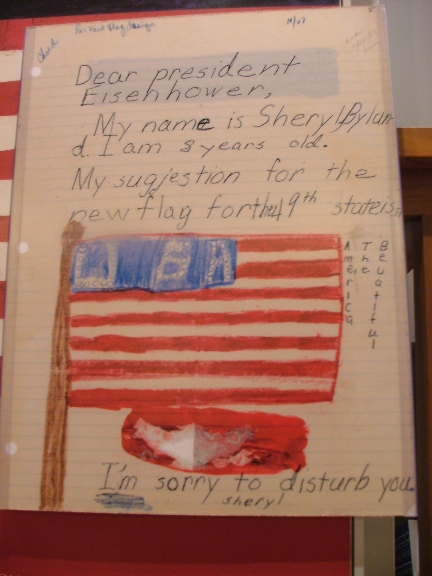 Re: New Flag design
10/27
Dear president
Eisenhower,
My name is Sheryl Bylun
d. I am 8 years old.
My sugjestion for the
new flag for the 49th state is,
America
The
Beuatiful
I'm sorry to disturb you.
sheryl